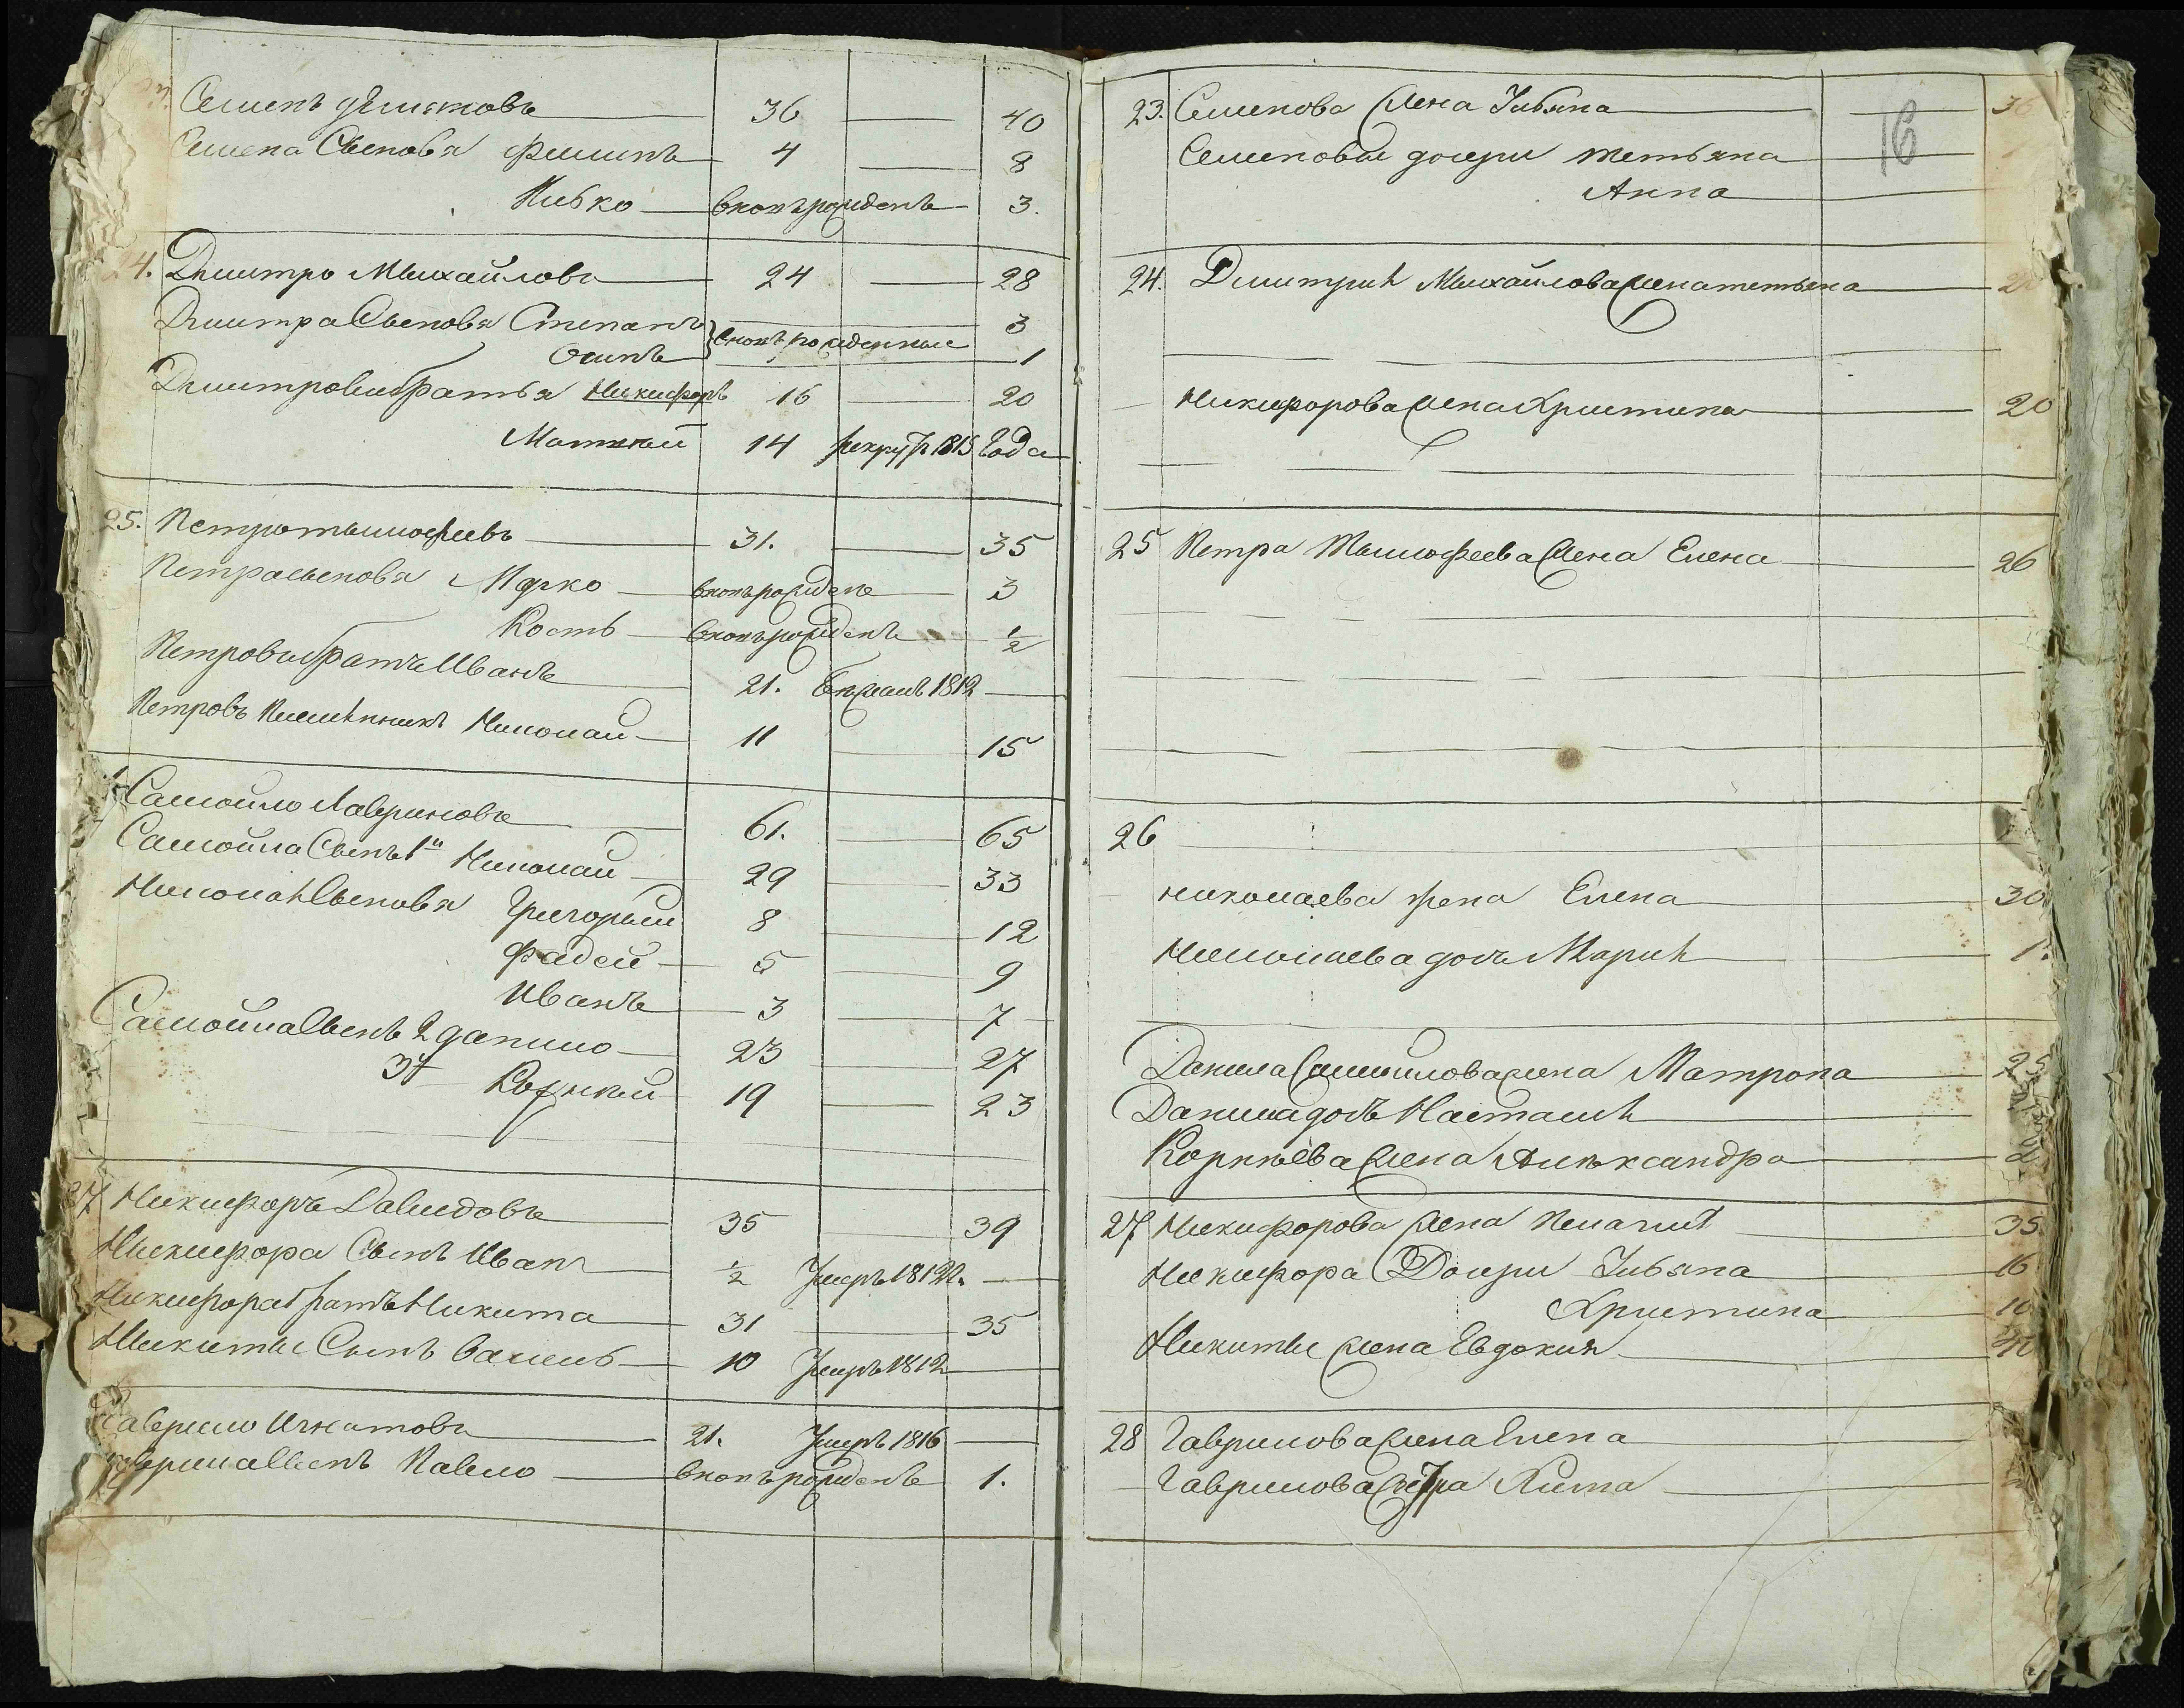 Семенъ
36 — 40
Семена Сыновья Филипъ 4 — 8
Ивко вновъ рожденъ 3.
24. Дмитро Михайловъ 24 — 28
Дмитра Сыновья Степанъ 3
вновь рожденные
Осипъ 1
Дмитровы братья Никифоръ 16 — 20
Матвий 14 рекрут 1813 Года
25. Петро Тымофеевъ 31. — 35
Петра сыновья Марко вновъ рожденъ 3
Кость вновъ рожденъ ½
Петровъ братъ Иванъ 21. 1812 —
Петровъ племѣнникъ Николай 11 — 15
Самойло Лавриновъ 61. — 65
Самойла Сынъ 1й Николай 29 — 33
Николая Сыновья Григорый 8 — 12
Фадей 5 — 9
Иванъ 3 — 7
Самойла Сынъ 2 данило 23 — 27
3й Корнѣй 19 — 23
27 Никифоръ Давидовъ 35 — 39
Никифора Сынъ Иванъ ½ Умеръ 1812г. —
Никифора братъ Никита 31 — 35
Никиты Сынъ Василь 10 Умеръ 1812
Гаврило Игнатовъ 21. Умеръ 1816 —
Гаврила Сынъ Павло вновъ рожденъ 1.
16
23. Семенова Жена Ульяна 36
Семеновы дочери Тетьяна
Анна
24. Дмитрия Михайлова жена тетьяна
Никифорова жена Христина 20
25 Петра Тымофеева Жена Елена 26
26
николаева жена Елена 30
Николаева дочь Мария 1.
Данила Самойлова жена Матрона 25
Данила дочь Настасия
Корнѣева Жена Александра
27 Никифорова жена Пелагия 35.
Никифора Дочери Ульяна 16
Христина 10
Никиты жена Евдокия 40
28 Гаврилова Жена Елена
Гаврилова Сестра